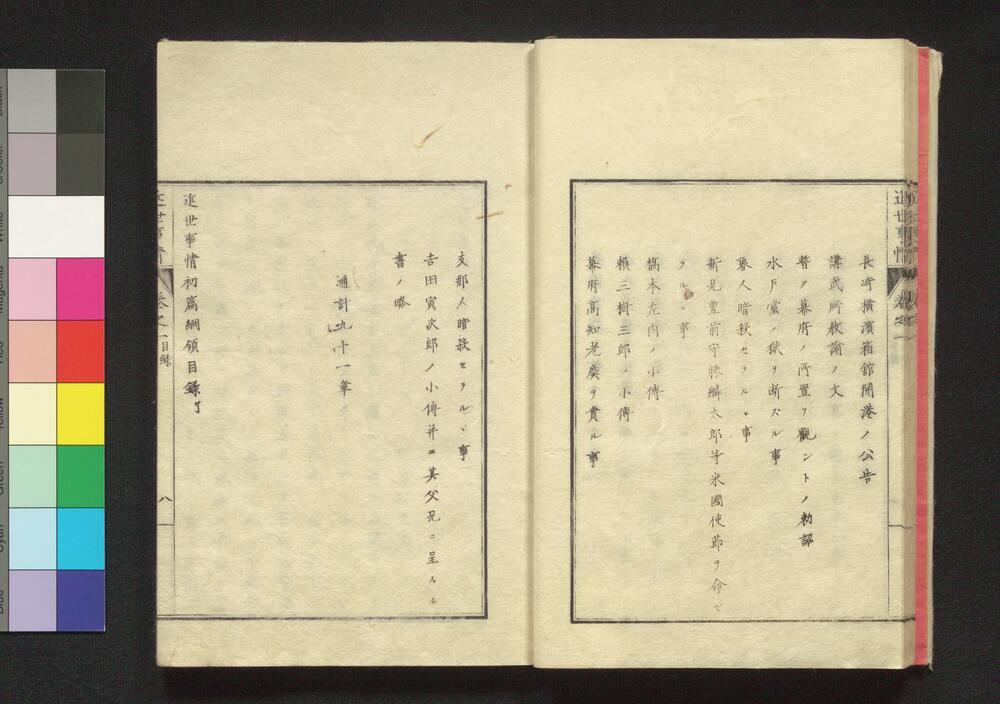 近世事情 卷之一
長崎橫濱箱舘開港ノ公告
講武所敎諭ノ文
暫ク幕府ノ所置ヲ觀ントノ勅詔
水戶黨ノ獄ヲ断スル事
魯人暗殺セラルヽ事
新見豊前守勝麟太郎等米國使節ヲ命ゼ
ラルヽ事
橋本左内ノ小傳
賴三樹三郎ノ小傳
幕府高知老侯ヲ責ル事
支那人暗殺セラルヽ事
吉田寅次郎ノ小傳并ニ其父兄ニ呈スル
書ノ略
通計九十一章
近世事情初篇綱領目錄
近世事情 卷之一目錄 八
Black
White
Magenta
Red
Yellow
Green
Cyan
Blue